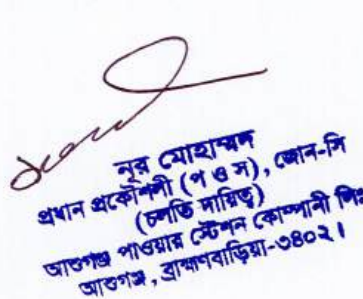 নূর মোহাম্মদ
প্রধান প্রকৌশলী (প ও স), জোন-সি
(চলতি দায়িত্ব)
আশুগঞ্জ পাওয়ার স্টেশন কোম্পানী লিঃ
আশুগঞ্জ, ব্রাহ্মণবাড়িয়া-৩৪০২।